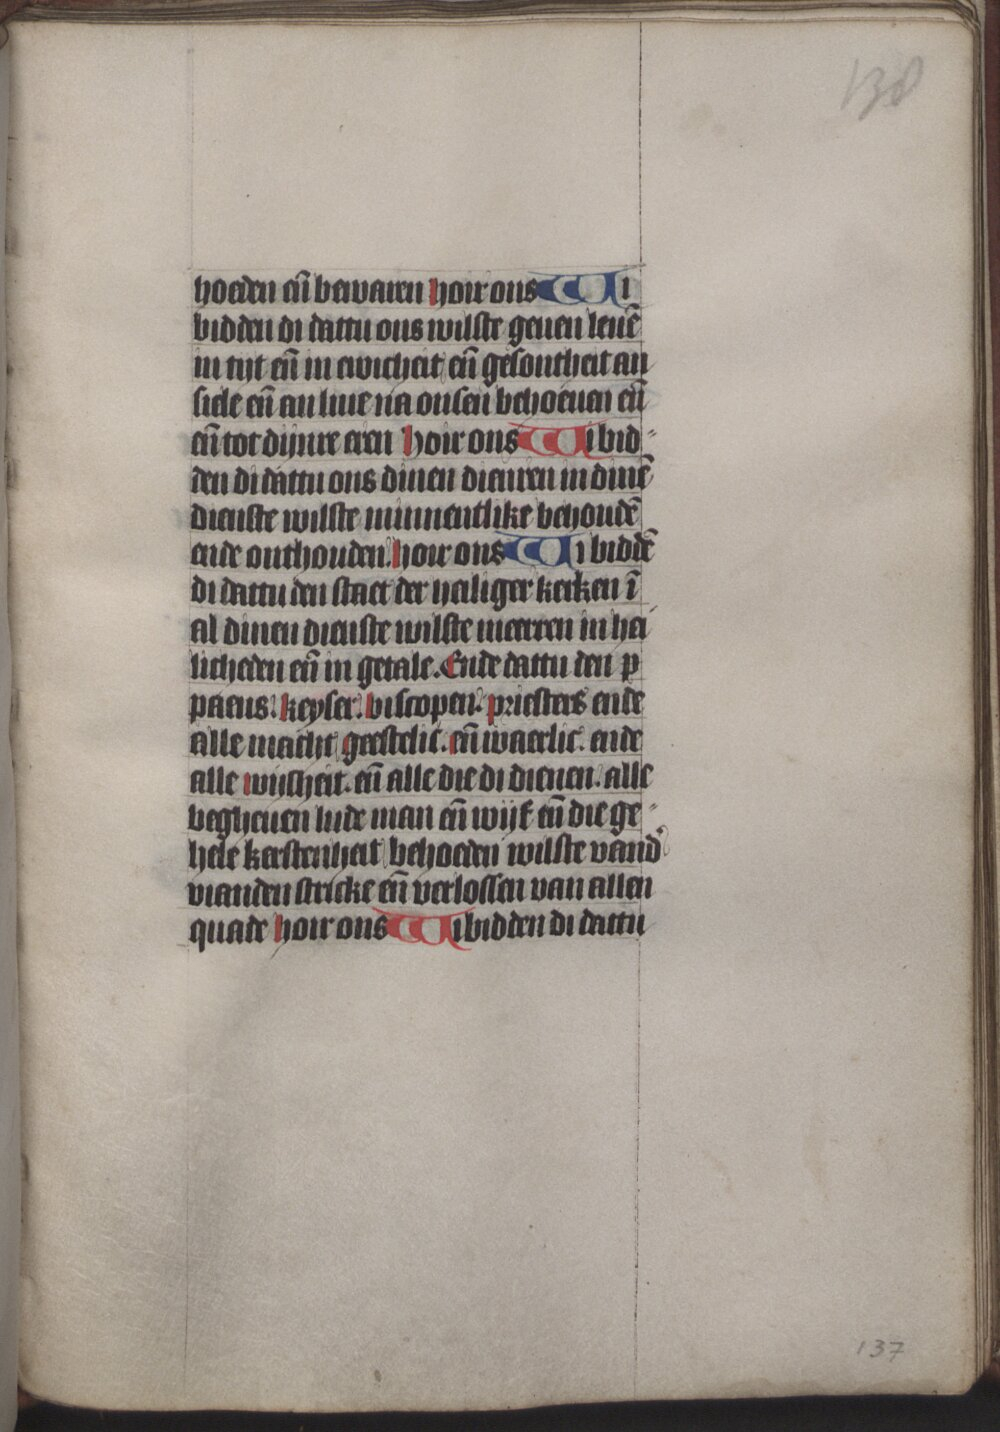 138
hoeden eñ bewaren hoir ons Wi
bidden di dattu ons wilste geuen leuē
in tijt eñ in ewicheit eñ gesontheit an
siele eñ an liue na onsen behoeuen eñ
eñ tot dijnre eren hoir ons Wi bid⸗
den di dattu ons dinen dienren in dinē
dienste wilste minnentlike behoudē
ende onthouden. hoir ons Wi biddē
di dattu den staet der heiliger kerken ī
al dinen dienste wilste meerren in hei
licheden eñ in getale. Ende dattu den p
paeus. keyser. biscopen. priesters ende
alle macht geestelic. eñ waerlic. ende
alle wijsheit. eñ alle die di dienen. alle
begheuen lude man eñ wijf eñ die ge⸗
hele kerstenheit behoeden wilste vand
vianden stricke eñ verlossen van allen
quade hoir ons Wi bidden di dattu
137